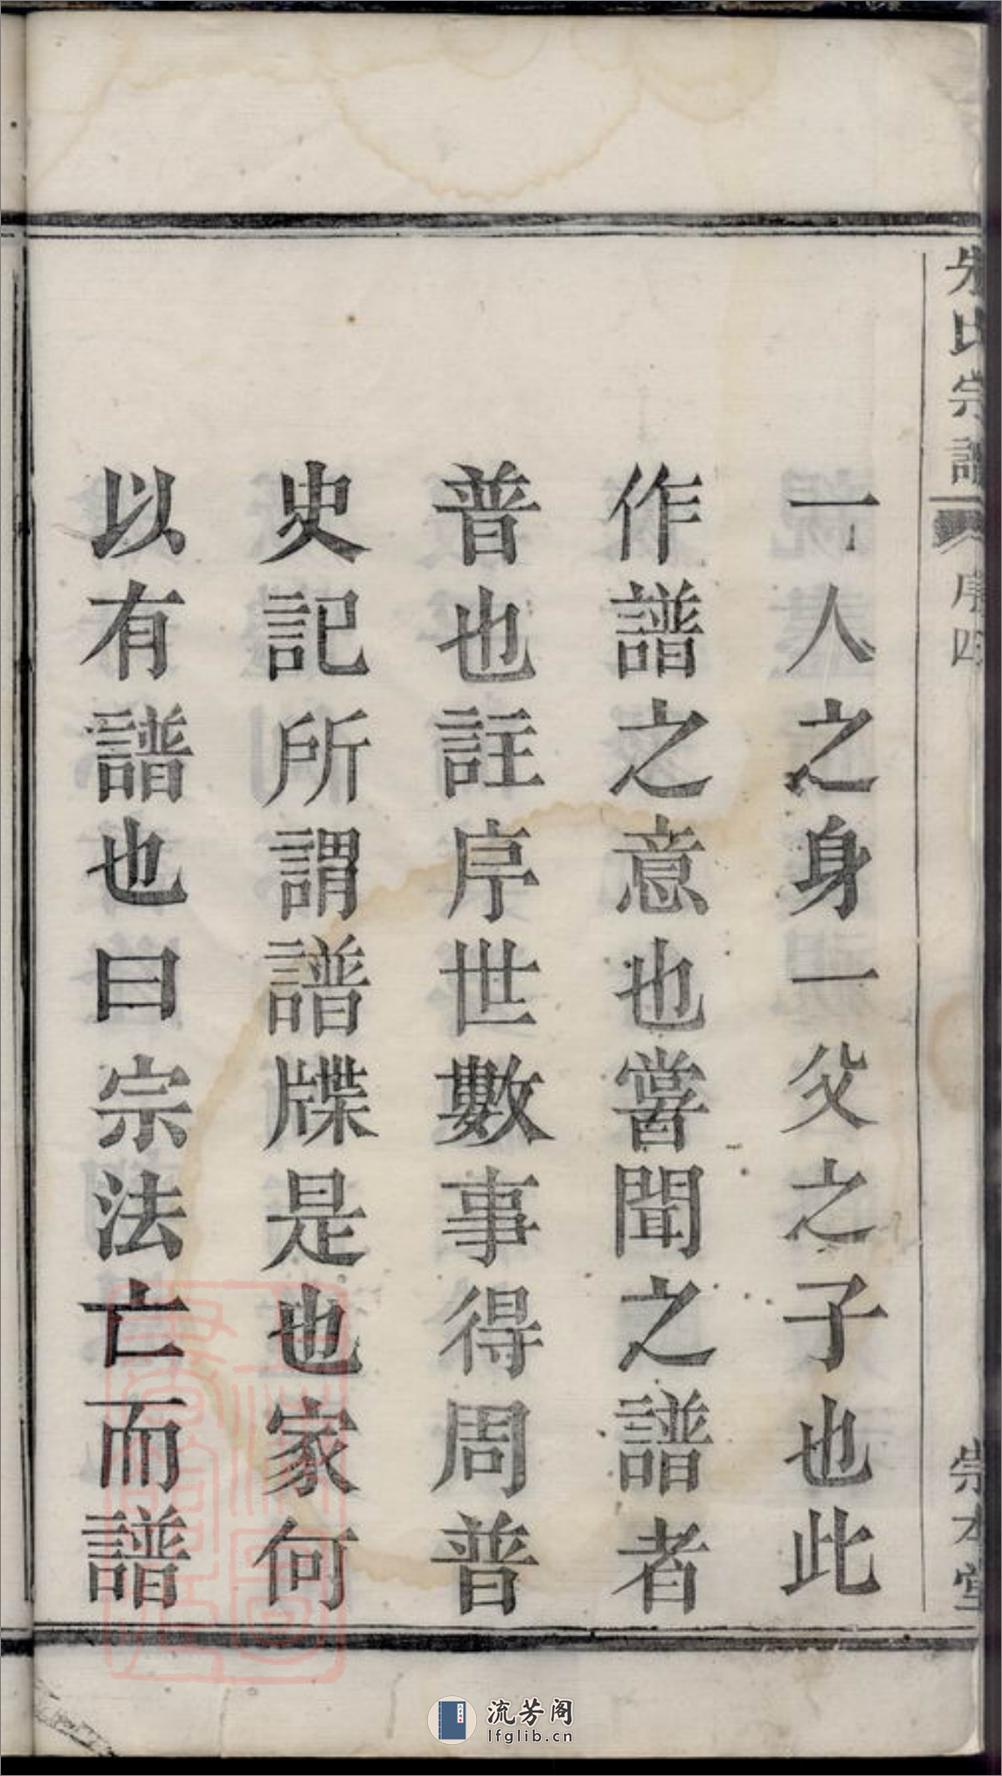 朱氏宗譜
序四
崇本堂
一人之身一父之子也此
作譜之意也嘗聞之譜者
普也註序世數事得周普
史記所謂譜牒是也家何
以有譜也曰宗法亡而譜
流芳阁
lfglib.cn